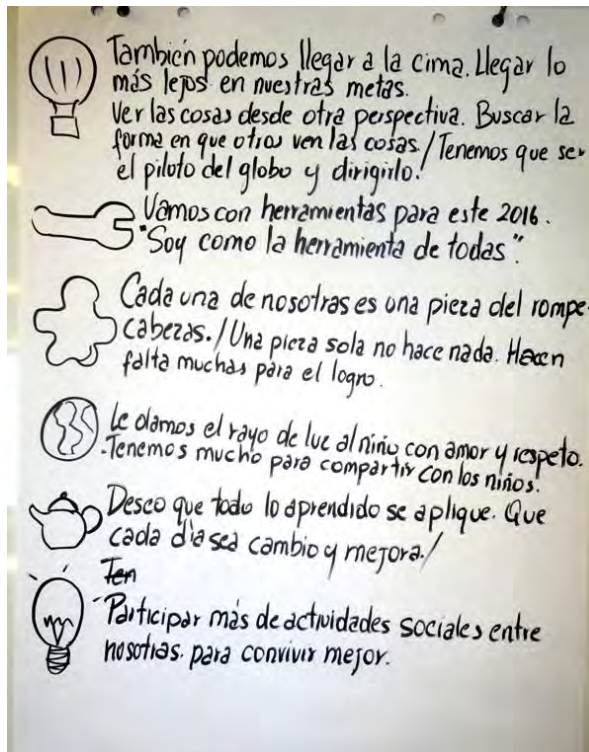 También podemos llegar a la cima. Llegar lo
más lejos en nuestras metas.
Ver las cosas desde otra perspectiva. Buscar la
forma en que otros ven las cosas./Tenemos que ser
el piloto del globo y dirigirlo.
Vamos con herramientas para este 2016.
"Soy como la herramienta de todas".
Cada una de nosotras es una pieza del rompe-
cabezas./Una pieza sola no hace nada. Hacen
falta muchas para el logro.
Le damos el rayo de luz al niño con amor y respeto.
-Tenemos mucho para compartir con los niños.
Deseo que todo lo aprendido se aplique. Que
cada día sea cambio y mejora./
Ten
Participar más de actividades sociales entre
nosotras. para convivir mejor.